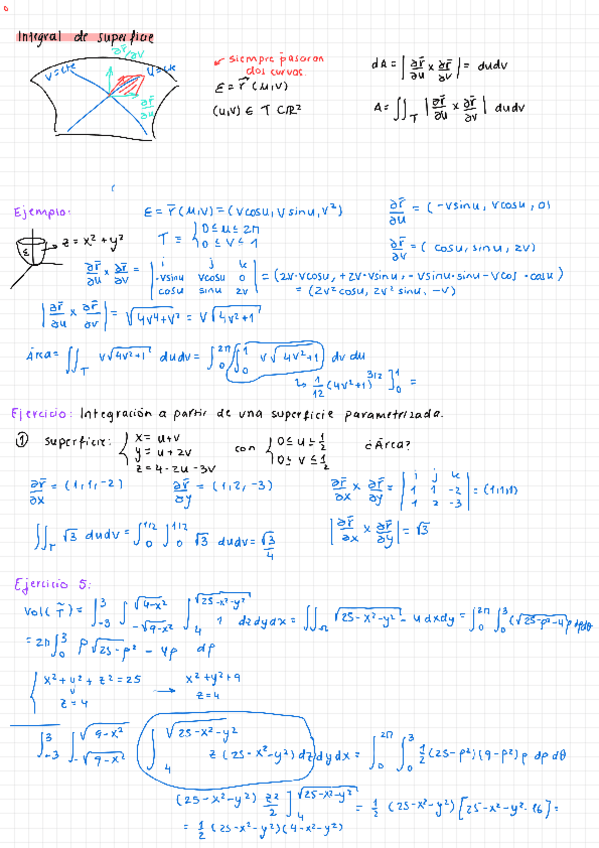 Integral de superficie
∂r̄/∂v
v=cte
u=cte
∂r̄/∂u
siempre pasaran
dos curvas.
Σ = r̄(u,v)
(u,v) ∈ T ⊂ ℝ²
dA = |∂r̄/∂u × ∂r̄/∂v| = dudv
A = ∬_T |∂r̄/∂u × ∂r̄/∂v| dudv
Ejemplo:
Σ = r̄(u,v) = (vcosu, vsinu, v²)
∂r̄/∂u = (-vsinu, vcosu, 0)
T = { 0 ≤ u ≤ 2π
0 ≤ v ≤ 1
z = x² + y²
∂r̄/∂v = (cosu, sinu, 2v)
∂r̄/∂u × ∂r̄/∂v = | i j k
-vsinu vcosu 0
cosu sinu 2v | = (2v·vcosu, +2v·vsinu, -vsinu·sinu - vcos·cosu)
= (2v²cosu, 2v²sinu, -v)
|∂r̄/∂u × ∂r̄/∂v| = √(4v⁴+v²) = v√(4v²+1)
Área = ∬_T v√(4v²+1) dudv = ∫₀^2π ∫₀^1 v√(4v²+1) dv du
↳ 1/12 (4v²+1)^3/2 ]₀^1 =
Ejercicio: Integración a partir de una superficie parametrizada.
① superficie: { x = u+v
y = u+2v
z = 4-2u-3v
con { 0 ≤ u ≤ 1/2
0 ≤ v ≤ 1/2
¿Área?
∂r̄/∂x = (1,1,-2)
∂r̄/∂y = (1,2,-3)
∂r̄/∂x × ∂r̄/∂y = | i j k
1 1 -2
1 2 -3 | = (1,1,1)
∬_T √3 dudv = ∫₀^1/2 ∫₀^1/2 √3 dudv = √3/4
|∂r̄/∂x × ∂r̄/∂y| = √3
Ejercicio 5:
Vol(T̃) = ∫₋₃^3 ∫_-√(9-x²)^√(4-x²) ∫₄^√(25-x²-y²) 1 dzdydx = ∬_Ω √(25-x²-y²) - 4 dxdy = ∫₀^2π ∫₀^3 (√(25-ρ²)-4)ρ dρdθ
= 2π∫₀^3 ρ√(25-ρ²) - 4ρ dρ
{ x² + y² + z² = 25
z = 4
→ x² + y² + 9
z = 4
∫₋₃^3 ∫_-√(9-x²)^√(9-x²) ∫₄^√(25-x²-y²) z(25-x²-y²) dz dydx = ∫₀^2π ∫₀^3 1/2 (25-ρ²)(9-ρ²)ρ dρ dθ
(25-x²-y²) z²/2 ]₄^√(25-x²-y²) = 1/2 (25-x²-y²)[25-x²-y²-16] =
= 1/2 (25-x²-y²)(4-x²-y²)